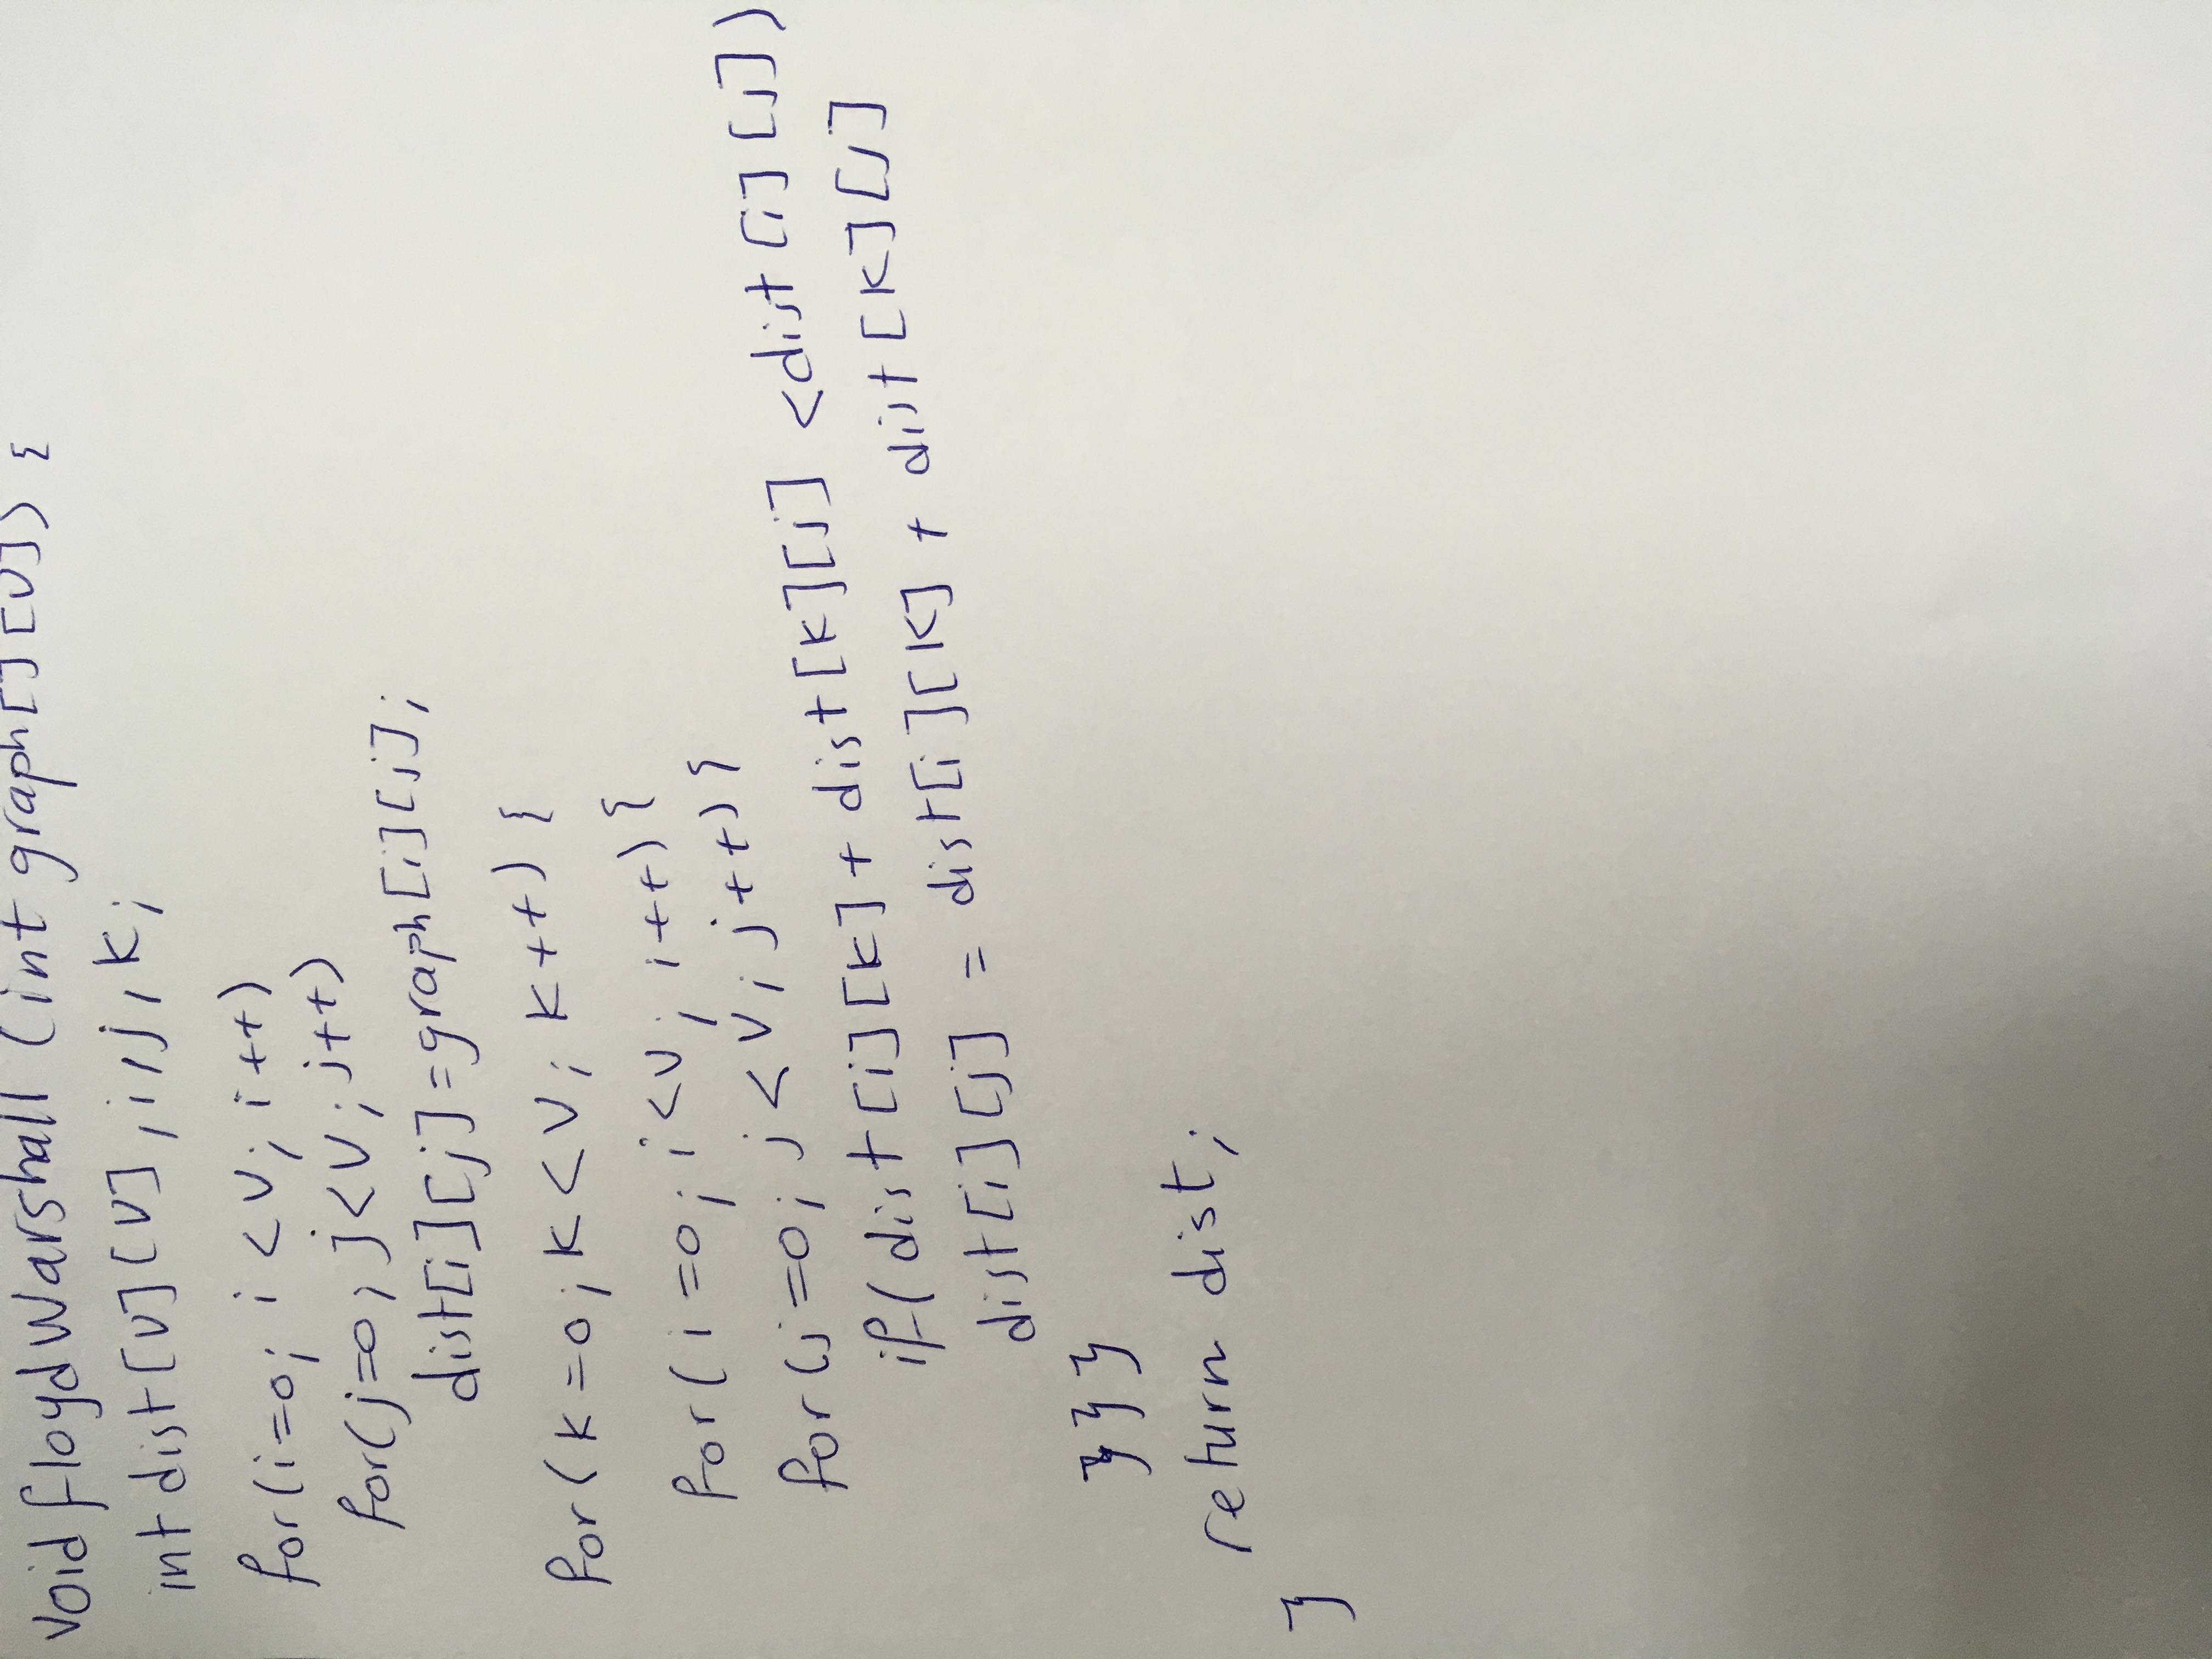 void floydWarshall (int graph[][V]) {
int dist[V][V], i, j, k;
for(i=0; i<V; i++)
for(j=0; j<V; j++)
dist[i][j]=graph[i][j];
for(k=0; k<V; k++) {
for(i=0; i<V; i++){
for(j=0; j<V; j++){
if(dist[i][k]+dist[k][j] <dist[i][j])
dist[i][j] = dist[i][k] + dist[k][j]
}}}
return dist;
}